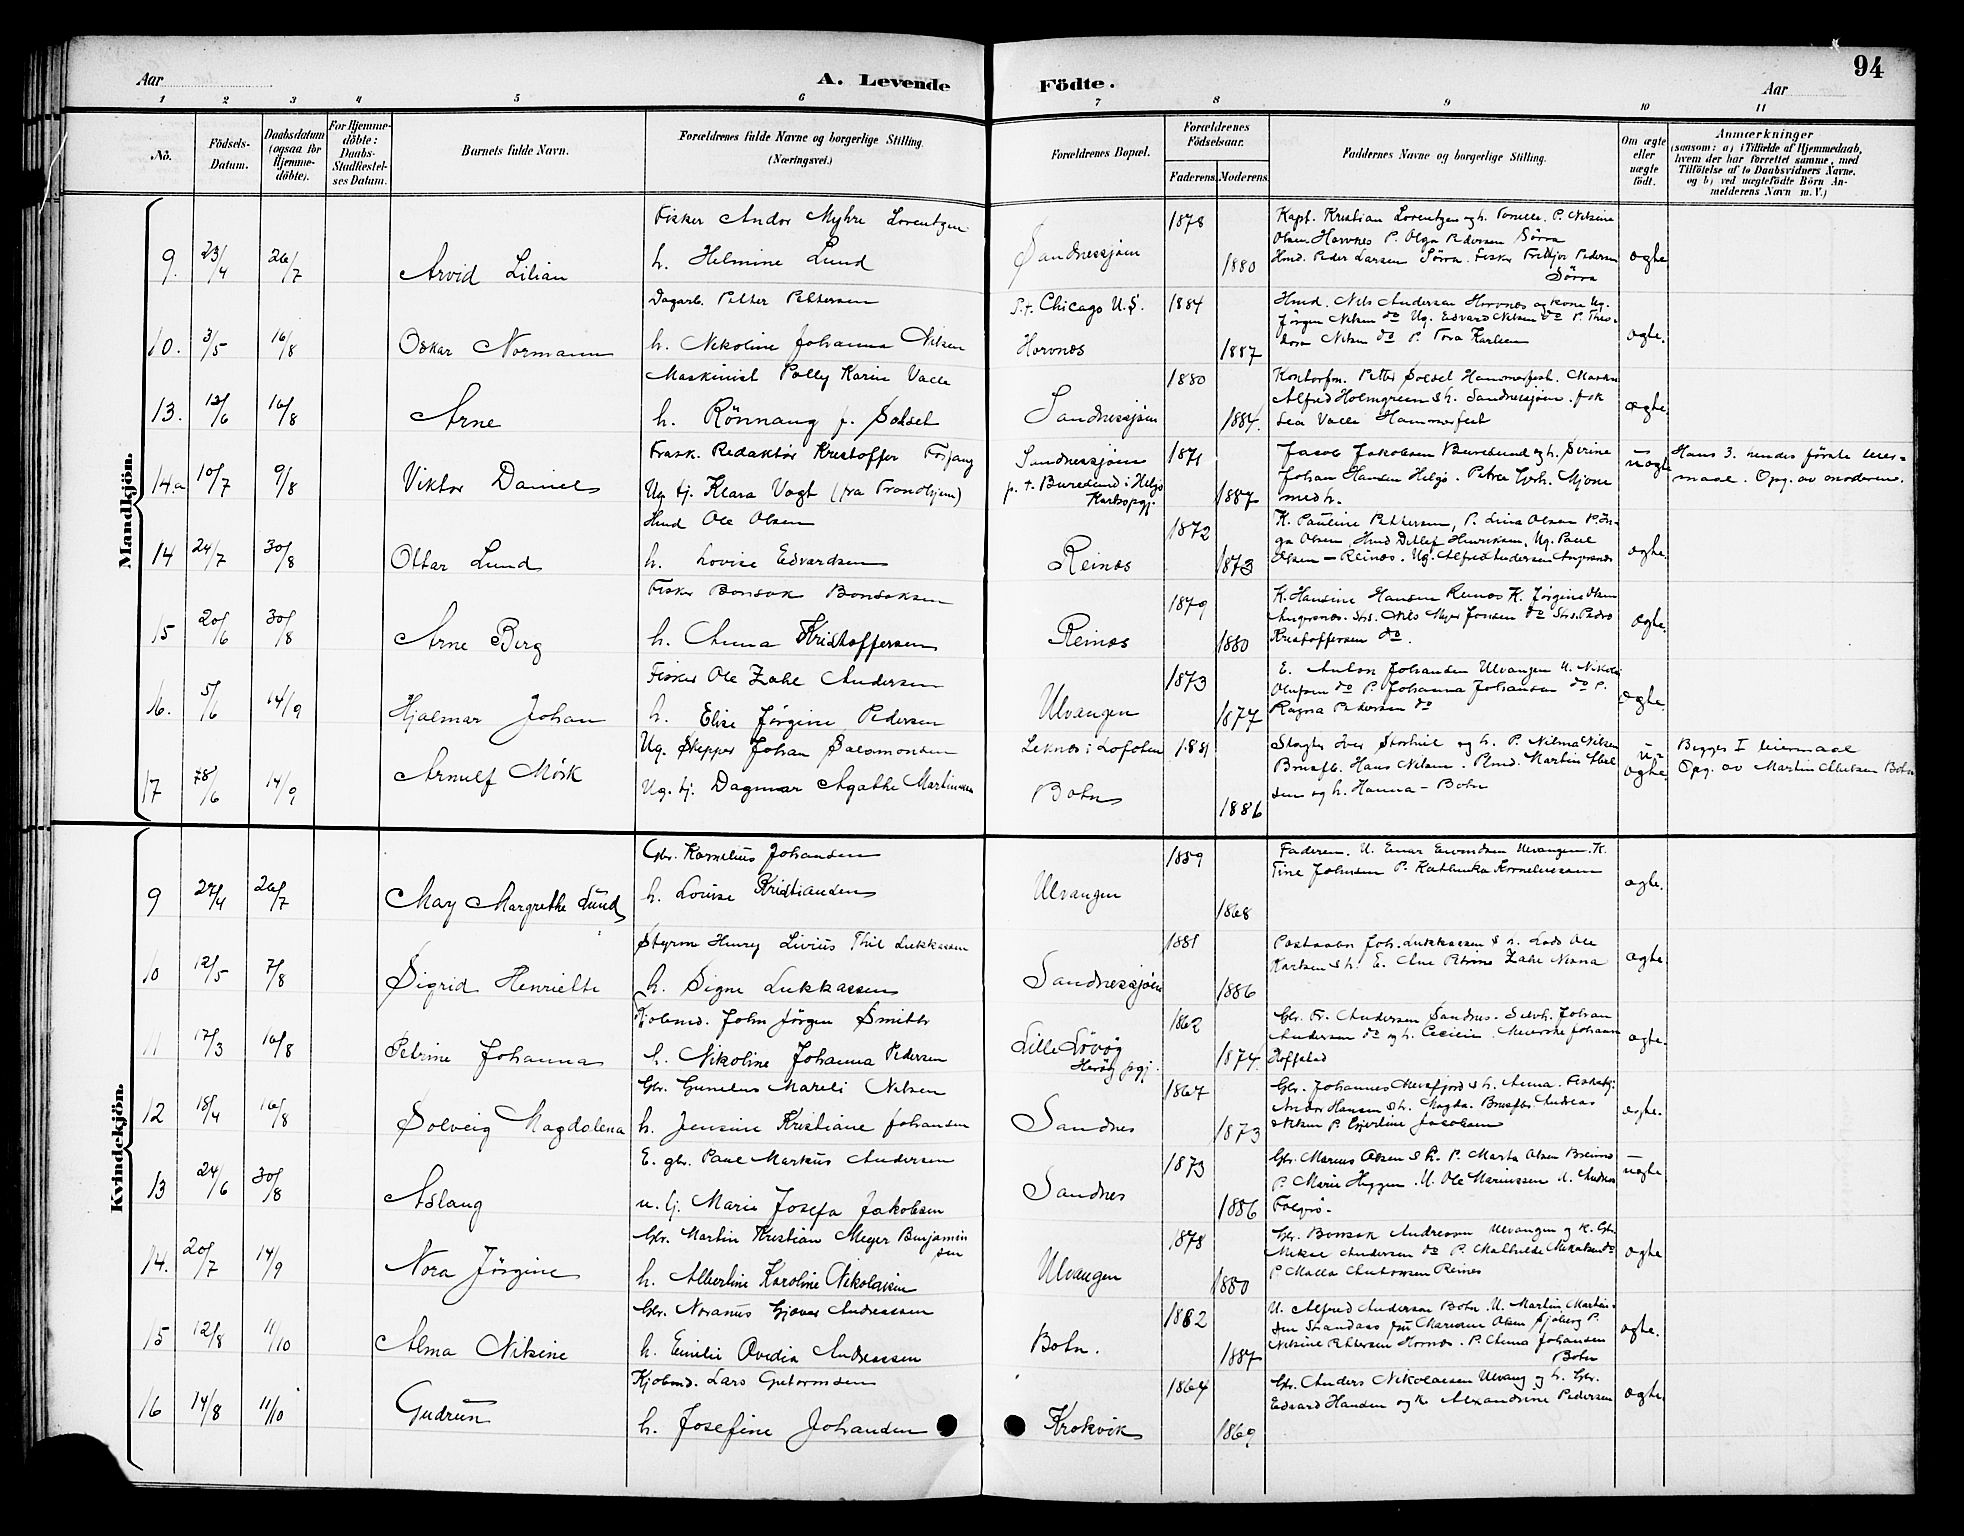 94
Aar
A. Levende
Födte.
Aar
1 2 3 4 5 6 7 8 9 10 11
No.
Födsels-Datum.
Daabsdatum (ogsaa for Hjemme-döbte).
For Hjemme-döbte: Daabs-Stadfæstel-ses Datum.
Barnets fulde Navn.
Forældrenes fulde Navne og borgerlige Stilling.
(Næringsvei.)
Forældrenes Bopæl.
Forældrenes Födselsaar.
Faderens. Moderens.
Faddernes Navne og borgerlige Stilling.
Om ægte eller uægte født.
Anmærkninger
(saasom: a) i Tilfælde af Hjemmedaab, hvem der har forrettet samme, med Tilføielse af to Daabsvidners Navne. og b) ved uægtefødte Börn An-melderens Navn m. V.)
Mandkjön.
9. 23/4 26/7 Arvid Lilian
Fisker Andor Myhre Lorentzen
h. Helmine Lund
Sandnessjøen 1878 1880
Kapt. Kristian Lorentzen og h. P. Nilsine
Olsen. Horvnes P. Olga Pedersen Sörra
Hmd. Peder Larsen Sörra. Fisker Fridtjof Pedersen
Sörra
ægte
10. 3/5 16/8 Oskar Normann
Dagarb. Petter Pettersen
h. Nikoline Johanna Nilsen
P.t. Chicago U.S.
Horvnes 1884 1887
Hmd. Nils Andersen Horvnes og kone Ug.
Jørgen Nilsen do Ug. Edvard Nilsen do P. Theo-
dora Nilsen do P. Tora Karlsen
ægte.
13. 12/6 16/8 Arne
Maskinist Polly Karin Valle
h. Rönnaug f. Solset
Sandnessjøen 1880 1884.
Kontorfm. Petter Solset Hammerfest. Maskn
Alfred Holmgreen & h. Sandnessjøen. frk
Lea Valle Hammerfest
ægte
14.a 10/7 9/8 Viktor Daniel
Frask. Redaktør Kristoffer
Ug tj. Klara Vogt (fra Trondhjem)
Sandnessjøen
p. t. Buresund i Helgø
Karlsø pgj. 1871 1887
Jacob Jakobsen Buresund og h. Serine
Johan Hansen Helgø. Petra
med h.
uægte
Hans 3. hendes første leier-
maal. Opg. av moderen.
14 24/7 30/8 Ottar Lund
Hmd Ole Olsen
h. Lovise Edvardsen
Reinæs 1872 1873
K. Pauline Pettersen, P. Lina Olsen P. In-
ga Olsen, Hmd Ditlef Henriksen, Ug. Paul
Olsen – Reinæs. Ug. Alfred Andersen Angersnes
ægte.
15 20/6 30/8 Arne Berg
Fisker Bonsak Bonsaksen
h. Anna Kristoffersen
Reinæs 1879 1880
K. Hansine Hansen Reinæs K. Jørgine Olsen
Angersnæs. Nils Meyer Jonsen do
Kristoffersen do.
ægte.
16. 5/6 14/9 Hjalmar Johan
Fisker Ole Zahl Andersen
h. Elise Jørgine Pedersen
Ulvangen 1873 1877
E. Anton Johansen Ulvangen U. Nikolai
Olufsen do P. Johanna Johansen do P.
Ragna Pedersen do
ægte.
17 28/6 14/9 Arnulf Mörk
Ug. Skepper Johan Salomonsen
Ug. tj. Dagmar Agathe Martinsen
Leknes i Lofoten
Botn 1881 1886
Slagter Iver Storhil og h. P. Nilma Nilsen
Brusfb. Hans Nilsen. Rmd. Martin
sen og h. Hanna – Botn
u-
ægte
Begges I leiermaal
Opg. av Martin Botn
Kvindekjön.
9 27/4 26/7 May Margrethe Lund
Gbr. Kornelius Johansen
h. Louise Kristiansen
Ulvangen 1859 1868
Faderen. U. Einar Eivindsen Ulvangen. K.
Tine Johnsen P. Kathinka Korneliussen
ægte.
10 12/5 7/8 Sigrid Henriette
Styrm Henry Livius Thil Lukkassen
h. Signe Lukkassen
Sandnessjøen 1881 1886
Postaabn Joh. Lukkassen & h. Lods Ole
Karlsen & h. E. Ane Petrine Zahl Nesna
ægte
11 17/3 16/8 Petrine Johanna
Kjøbmd. John Jørgen Smith
h. Nikoline Johanna Pedersen
Lille Lövøg
Herøy pgj. 1862 1874.
Gbr. Fr. Andersen Sandnes. Selvh. Johan
Andersen do og h. Cecilie. Johan
Hoffstad
ægte.
12 18/4 16/8 Solveig Magdalena
Gbr. Gunelius Mareli Nilsen
h. Jensine Kristiane Johansen
Sandnes 1867 1873
Gbr. Johannes Meisfjord & h. Anna.
Andor Hansen & h. Magda. Brusfb. Andreas
Nilsen P. Hjertine Jacobsen
ægte.
13 24/6 30/8 Aslaug
E. gbr. Paul Markus Andersen
u. tj. Marie Josefa Jakobsen
Sandnes 1873 1886
Gbr. Marius Olsen & h. P. Marta Olsen
P. Marie Heggen. U. Ole Mariussen U. Andreas
uægte
14. 20/7 14/9 Nora Jörgine
Gbr. Martin Kristian Meyer Benjamin
sen
h. Albertine Karoline Nikolaisen
Ulvangen 1878 1880
Gbr. Bonsak Andreasen Ulvangen og K. Gbr.
Mikal Andersen do P. Mathilde Mikalsen do
P. Malla Antonsen Reines
ægte
15 12/8 11/10 Alma Nilsine
Gbr. Noranus Gjæver Andreassen
h. Emilie Ovedia Andreassen
Botn. 1882 1887
U. Alfred Anderson Botn. U. Martin Martin-
sen Olsen Sjøberg P.
Nilsine Pettersen Hornes. P. Anna Johansen
Botn
ægte.
16 14/8 11/10 Gudrun
Kjøbmd. Lars Guttormsen
h. Josefine Johansen
Krokvik 1864 1869
Gbr. Anders Nikolaisen Ulvang og h. Gbr.
Edvard Hansen og K. Alexandrine Pedersen
ægte.